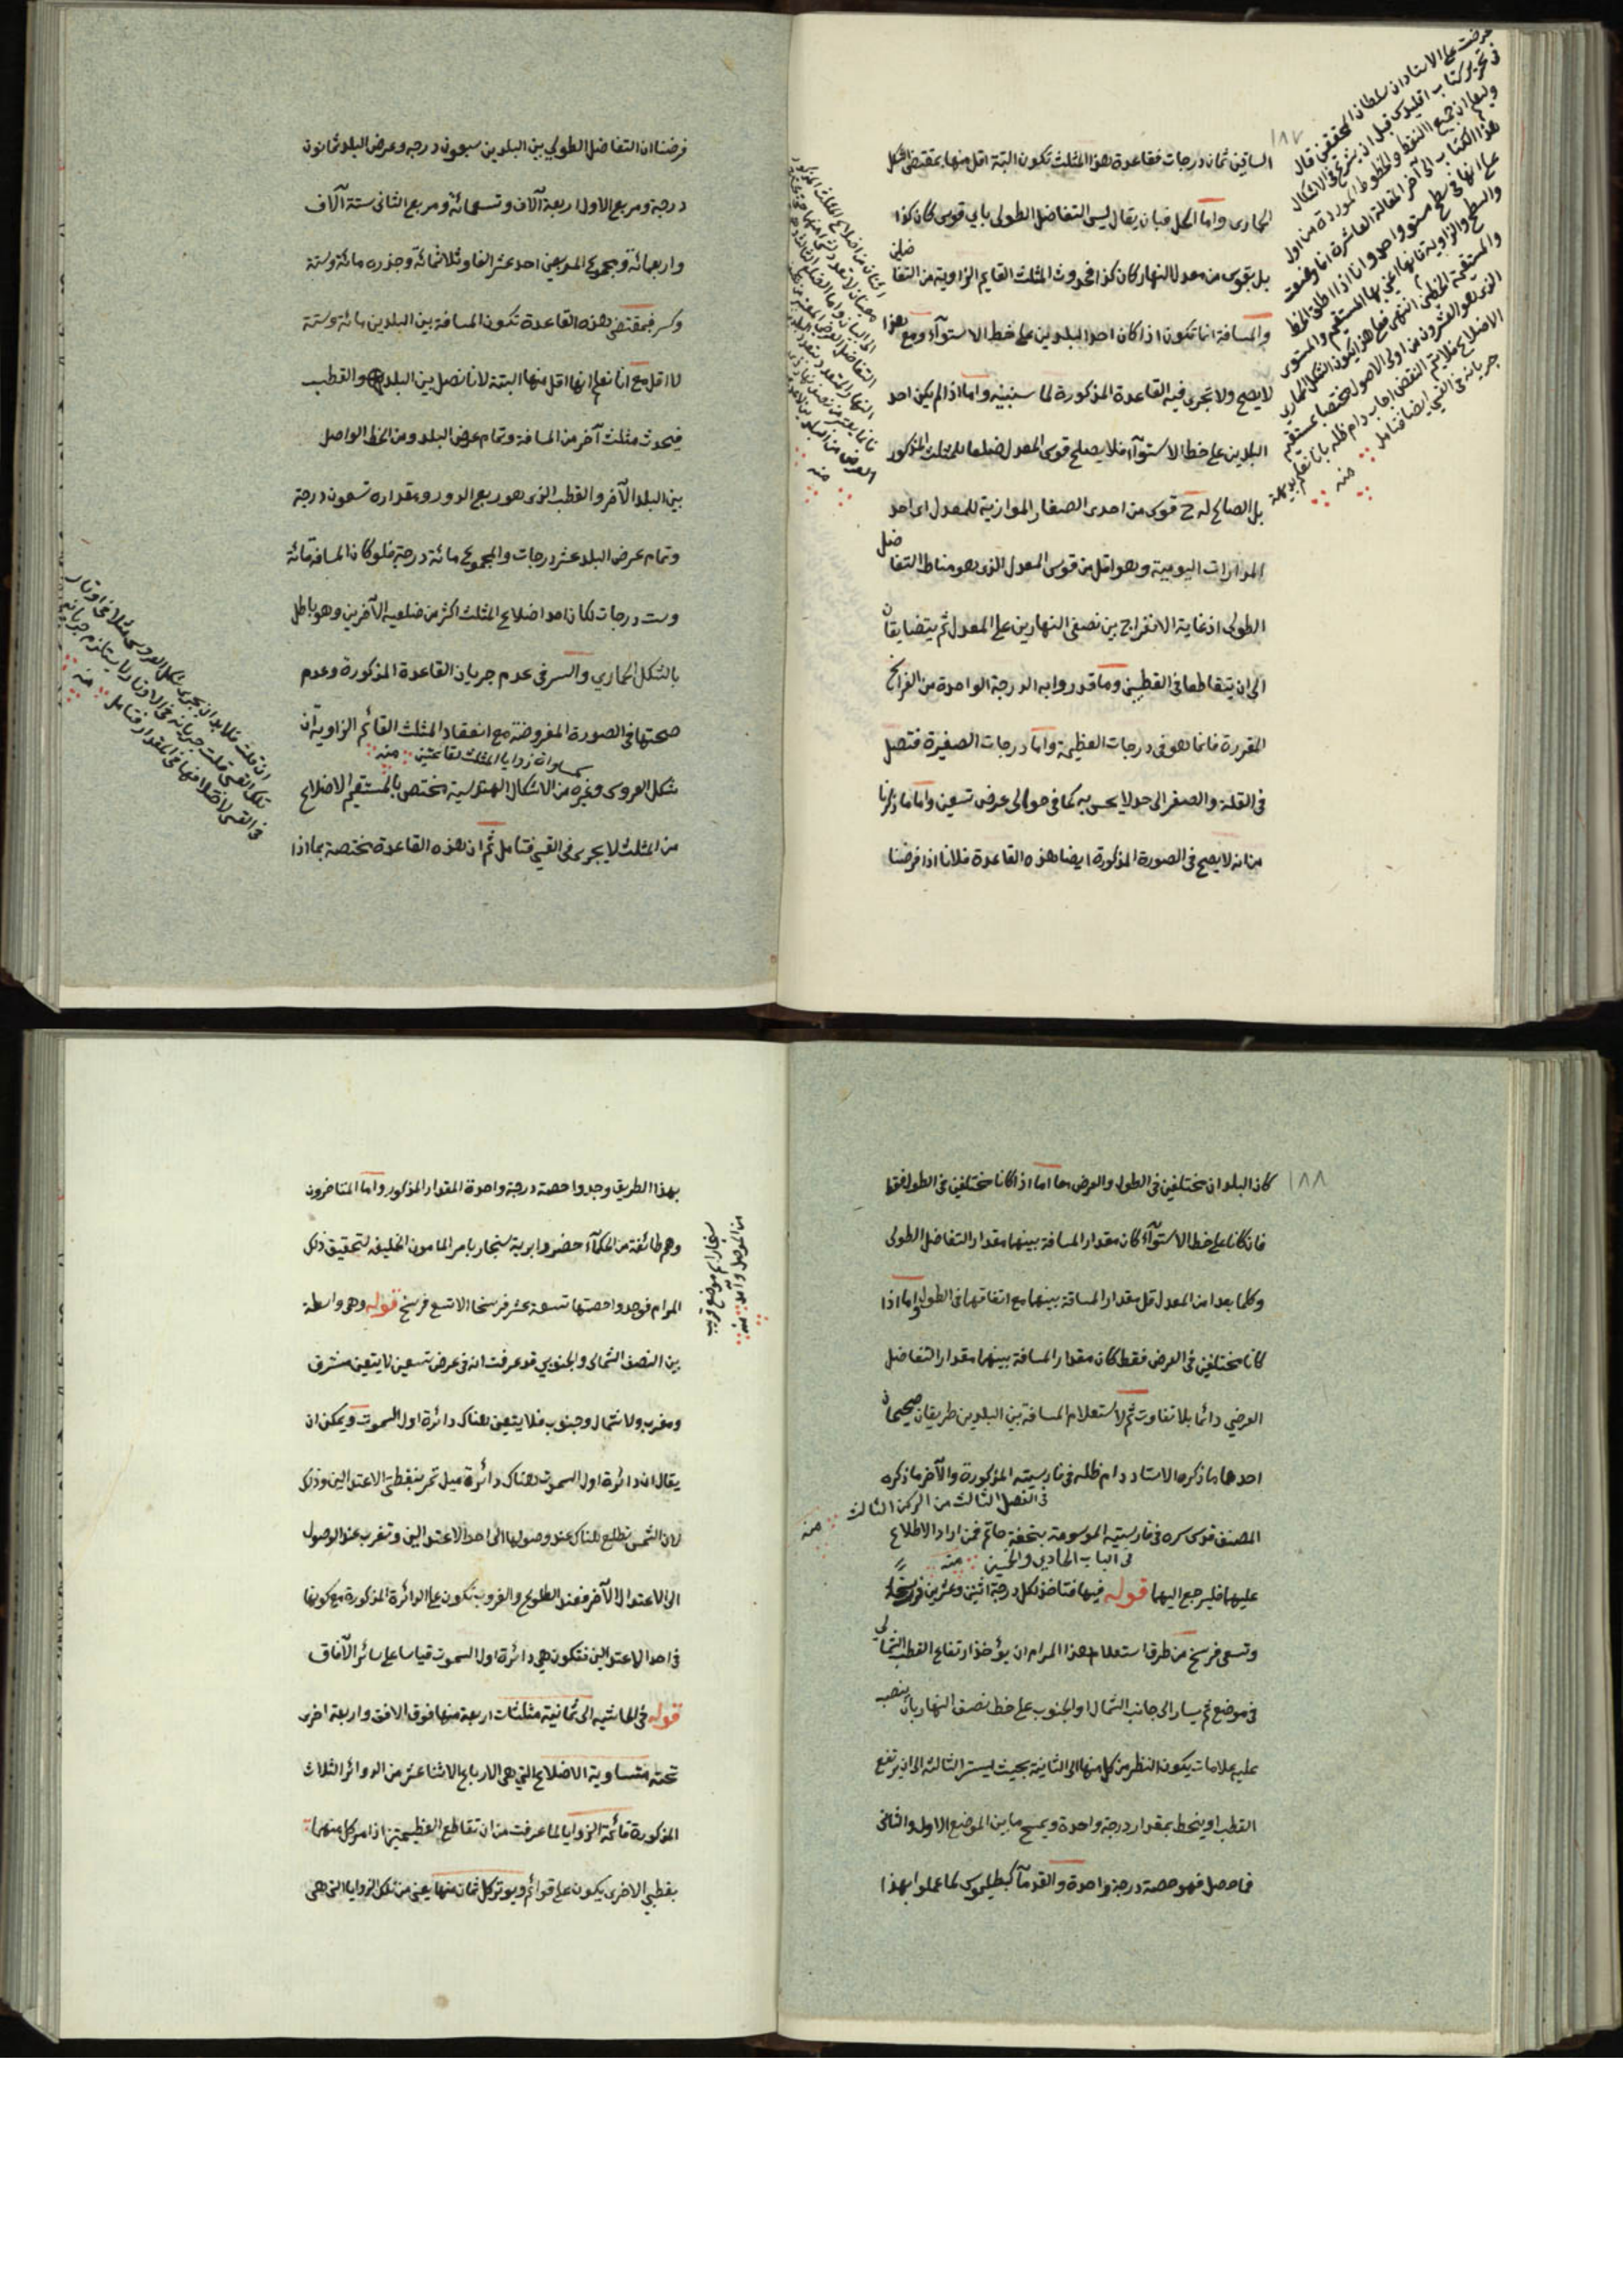 ١٨٧
الساقين ثمان درجات فقاعدة هذا المثلث تكون البتة اقل منها بمقتضى الشكل
الحمارى واما الحل فبان يقال ليس التفاضل الطولى باي قوس كان كذا
بل بقوس من معدل النهار كان كذا فحدوث المثلث القايم الزاوية من التفاضلين
والمسافة انما تكون اذا كان احد البلدين على خط الاستوآء ومع هذا
لا يصح ولا تجرى فيه القاعدة المذكورة لما سنبينه واما اذا لم يكن احد
البلدين على خط الاستوآء فلا يصلح قوس المعدل ضلعا للمثلث المذكور
بل الصالح له ح قوس من احدى الصغار الموازية للمعدل اى احد
المدارات اليومية وهو اقل من قوس المعدل الذى هو مناط التفاضل
الطولى اذ غاية الانفراج بين نصفى النهارين على المعدل ثم يتضايقان
الى ان يتقاطعا فى القطبين وما قدروا به الدرجة الواحدة من الفراسخ
المقررة فانما هو فى درجات العظيمة واما درجات الصغيرة فتصل
فى القلة والصغر الى حد لا يحس به كما فى حوالى عرض تسعين واما ما ذكرنا
من انه لا يصح فى الصورة المذكورة ايضا هذه القاعدة فلانا اذا فرضنا
عرضت على الاستاد ان سلطان المحققين قال
فى تحرير كتاب اقليدس قبل ان يشرع فى الاشكال
وليعلم ان جميع النقط والخطوط الموردة من اول
هذا الكتاب الى آخر المقالة العاشرة انما وضعت
على انها فى سطح مستو واحد وانا اذا اطلق الخط
والسطح والزاوية فانها اعنى بها المستقيم والمستوى
والمستقيمة الخطين انتهى فعلى هذا يكون الشكل الحمارى
الذى هو العشرون من اولى الاصول مختصا بمستقيم
الاضلاع فلا يتم النقض اجاب دام ظله بانا نعلم بديهة
جريانه فى القسى ايضا فتامل منه
فرضنا ان التفاضل الطولي بين البلدين سبعون درجة وعرض البلد ثمانون
درجة ومربع الاول اربعة آلاف وتسعمائة ومربع الثانى ستة آلاف
واربعمائة ومجموع المربعين احد عشر الفا وثلاثمائة وجذره مائة وستة
وكسر فبمقتضى هذه القاعدة تكون المسافة بين البلدين مائة وستة
لا اقل مع انا نعلم انها اقل منها البتة لانا نصل بين البلد والقطب
فيحدث مثلث آخر من المسافة وتمام عرض البلد ومن الخط الواصل
بين البلد الآخر والقطب الذى هو ربع الدور ومقداره تسعون درجة
وتمام عرض البلد عشر درجات والمجموع مائة درجة فلو كان المسافة مائة
وست درجات لكان احد اضلاع المثلث اكثر من ضلعيه الآخرين وهو باطل
بالشكل الحماري والسر فى عدم جريان القاعدة المذكورة وعدم
صحتها فى الصورة المفروضة مع انعقاد المثلث القائم الزاوية ان
كمساواة زوايا المثلث لقائمتين منه
شكل العروس وغيره من الاشكال الهندسية مختص بالمستقيم الاضلاع
من المثلث لا يجرى فى القسى فتامل ثم ان هذه القاعدة مختصة بما اذا
ان قلت فلا بد ان يجرى شكل العروس مثلا فى اوتار
تلك القسى قلت جريانه فى الاوتار لا يستلزم جريانه
فى القسى لاختلافها فى المقدار فتامل منه
١٨٨
كان البلدان مختلفين فى الطول والعرض معا اما اذا كانا مختلفين فى الطول فقط
فان كانا على خط الاستوآء كان مقدار المسافة بينهما مقدار التفاضل الطولى
وكلما بعدا من المعدل قل مقدار المسافة بينهما مع اتفاقهما فى الطول واما اذا
كانا مختلفين فى العرض فقط كان مقدار المسافة بينهما مقدار التفاضل
العرضي دائما بلا تفاوت ثم لاستعلام المسافة بين البلدين طريقان صحيحان
احدهما ما ذكره الاستاد دام ظله فى فارسيته المذكورة والآخر ما ذكره
فى الفصل الثالث من الركن الثالث منه
المصنف قدس سره فى فارسيته الموسومة بتحفه حاتم فمن اراد الاطلاع
فى الباب الحادي والخمسين منه
عليهما فليرجع اليهما قوله فيها فتاخذ لكل درجة اثنين وعشرين فرسخا
وتسعى فرسخ من طرق استعلام هذا المرام ان يؤخذ ارتفاع القطب الشمالي
فى موضع ثم يسار الى جانب الشمال او الجنوب على خط نصف النهار بان ينصب
عليه علامات يكون النظر من كل منها الى الثانية بحيث ليستر الثالثة الى ان يرتفع
القطب او ينحط بمقدار درجة واحدة ويمسح ما بين الموضع الاول والثانى
فما حصل فهو حصة درجة واحدة والقدمآء كبطليموس لما عملوا بهذا
بهذا الطريق وجدوا حصة درجة واحدة المقدار المذكور واما المتاخرون
وهم طائفة من الحكمآء حضروا برية سنجار بامر المامون الخليفه لتحقيق ذلك
المرام فوجدوا حصتها تسعة عشر فرسخا الا تسع فرسخ قوله وهى واسطة
بين النصف الشمالى والجنوبي قد عرفت ان فى عرض تسعين لا يتعين مشرق
ومغرب ولا شمال وجنوب فلا يتعين هناك دائرة اول السموت ويمكن ان
يقال ان دائرة اول السموت هناك دائرة ميل تمر بنقطتى الاعتدالين وذلك
لان الشمس تطلع هناك عند وصولها الى احد الاعتدالين وتغرب عند الوصول
الى الاعتدال الآخر فعند الطلوع والغروب تكون على الدائرة المذكورة مع كونها
فى احد الاعتدالين فتكون هي دائرة اول السموت قياسا على سائر الآفاق
قوله فى الحاشيه الى ثمانية مثلثات اربعة منها فوق الافق واربعة اخرى
تحته متساوية الاضلاع التي هى الارباع الاثنا عشر من الدوائر الثلاث
المذكورة قائمة الزوايا لما عرفت من ان تقاطع العظيمتين اذا مر كل منهما
بقطبي الاخرى يكون على قوائم ويوتر كل ثمان منها يعنى من تلك الزوايا التى هى
سنجار اسم موضع قريب
من الموصل وآمد منه